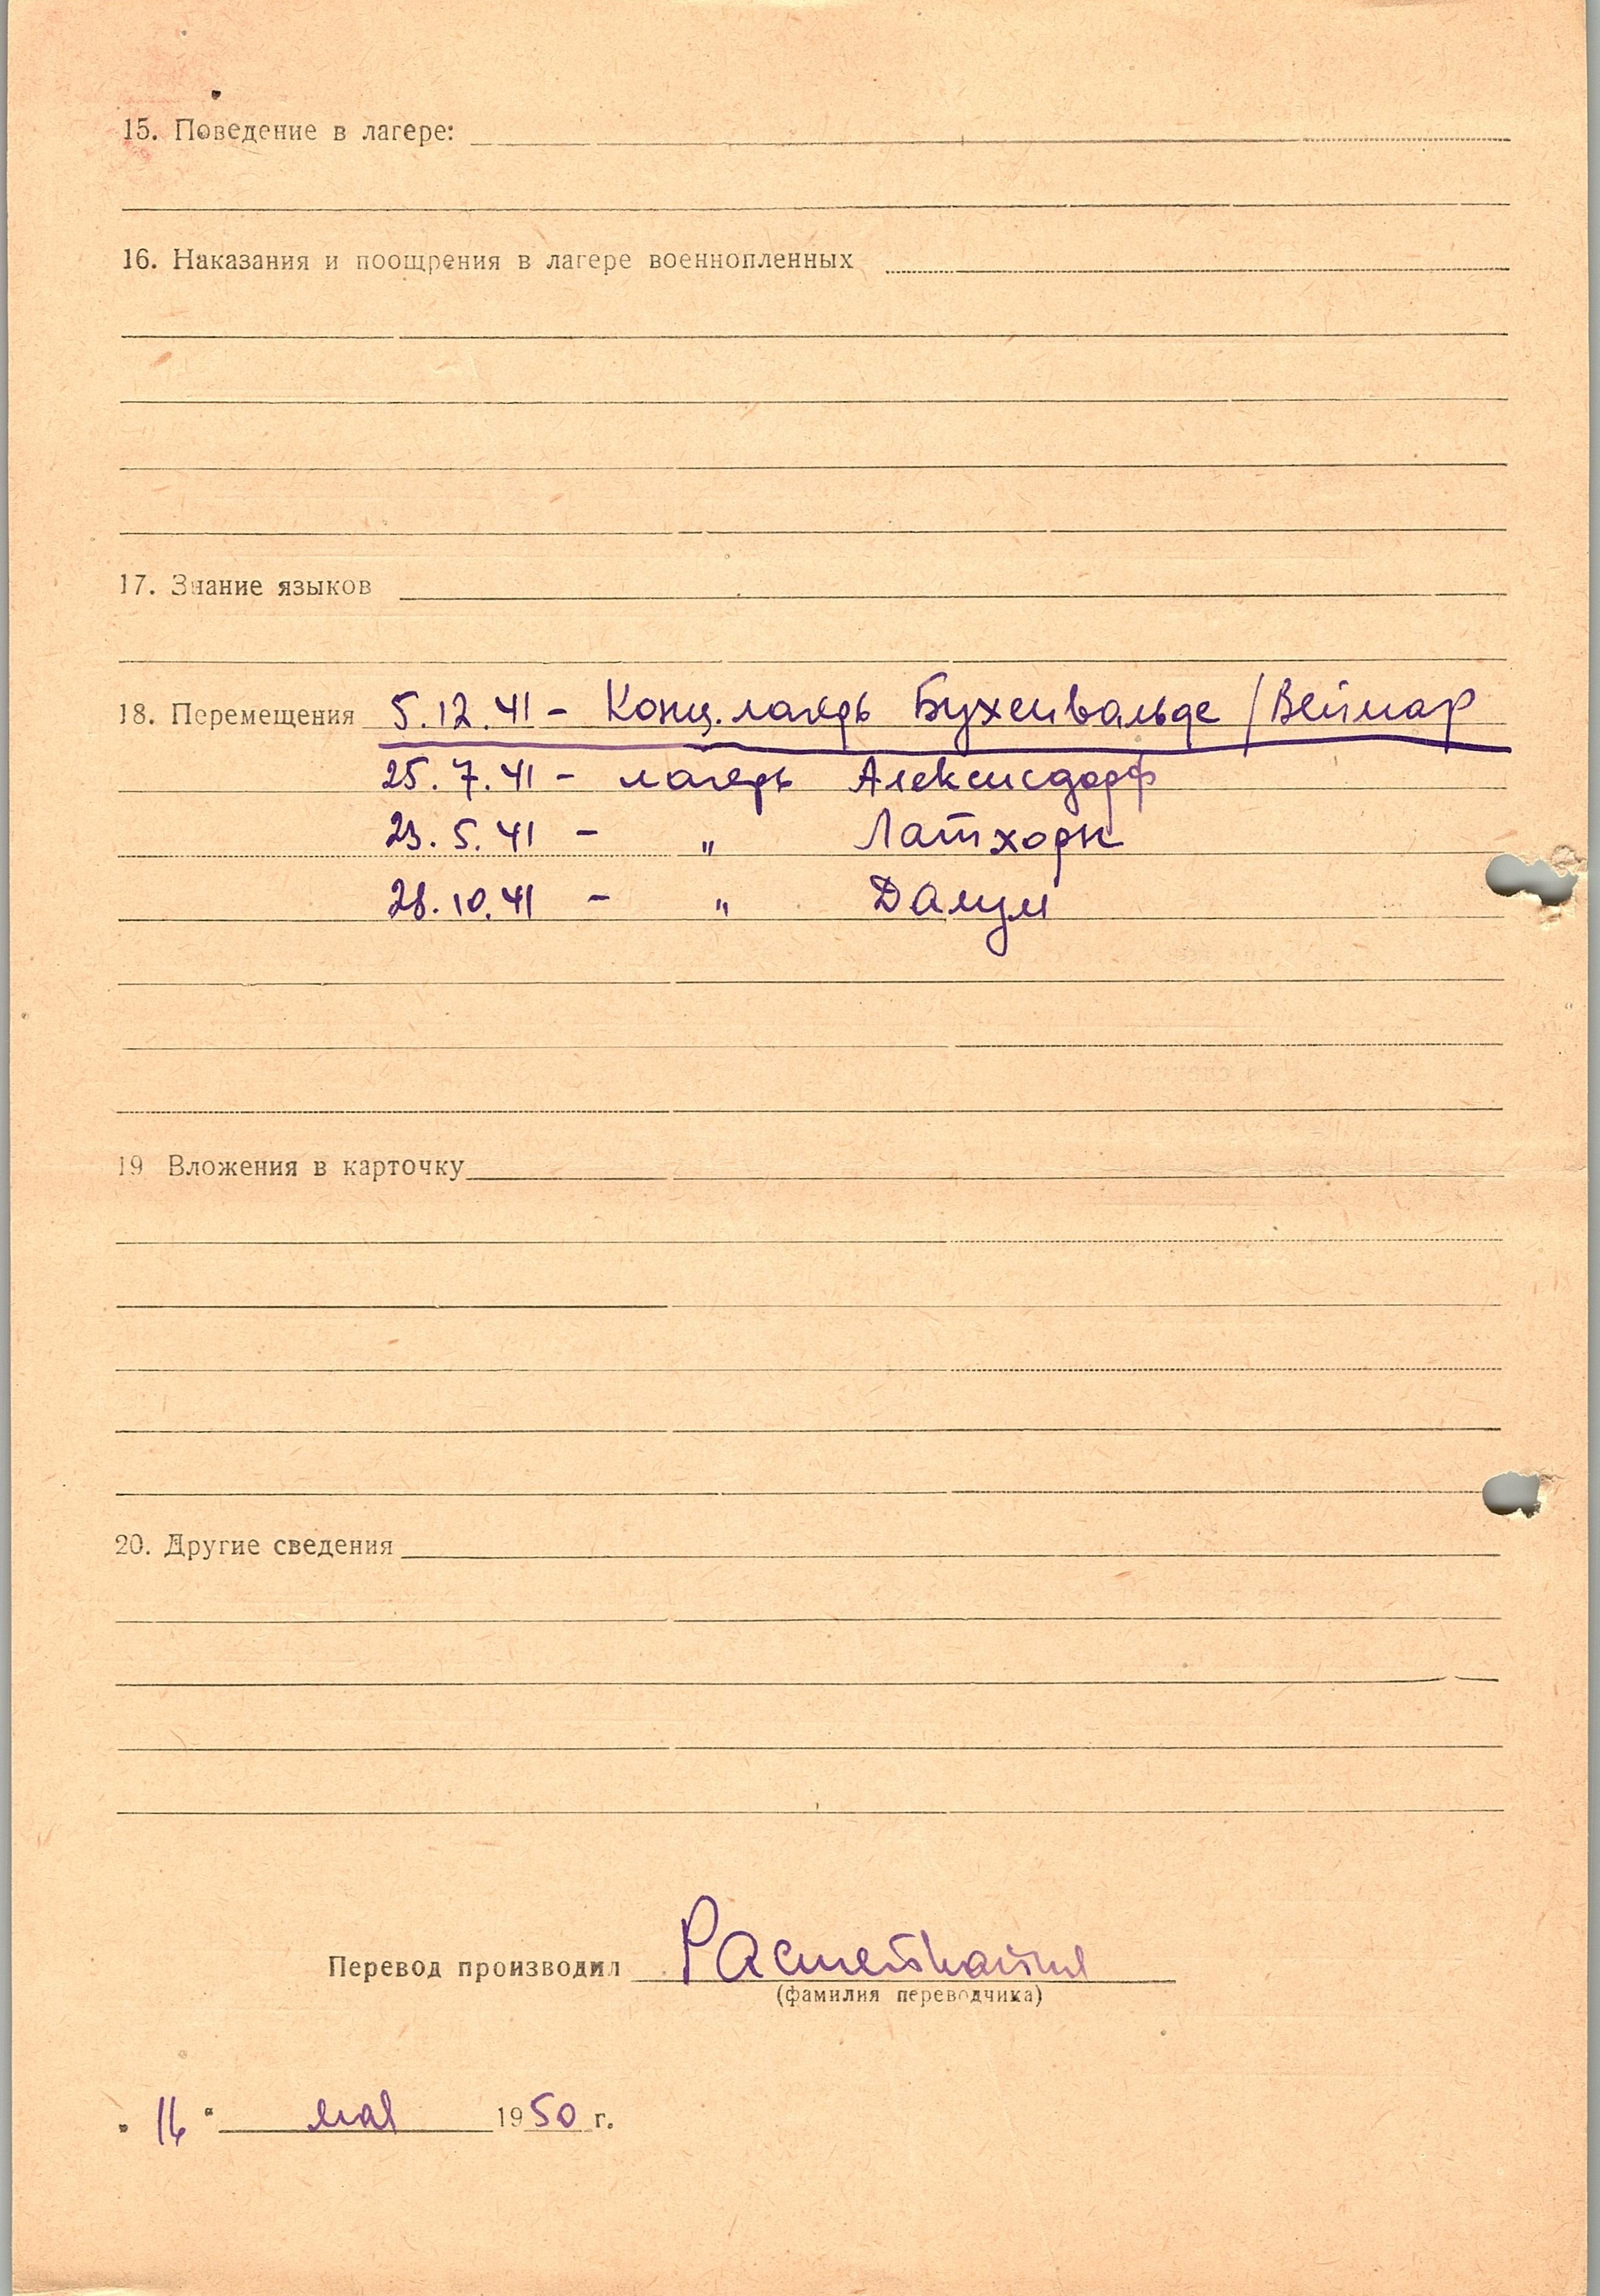 15. Поведение в лагере:
16. Наказания и поощрения в лагере военнопленных
17. Знание языков
18. Перемещения 5.12.41 - Конц.лагерь Бухенвальде /Веймар
25.7.41 - лагерь Алексисдорф
23.5.41 - " Латхорн
28.10.41 - " Далум
19 Вложения в карточку
20. Другие сведения
Перевод производил
(фамилия переводчика)
"16" мая 1950 г.